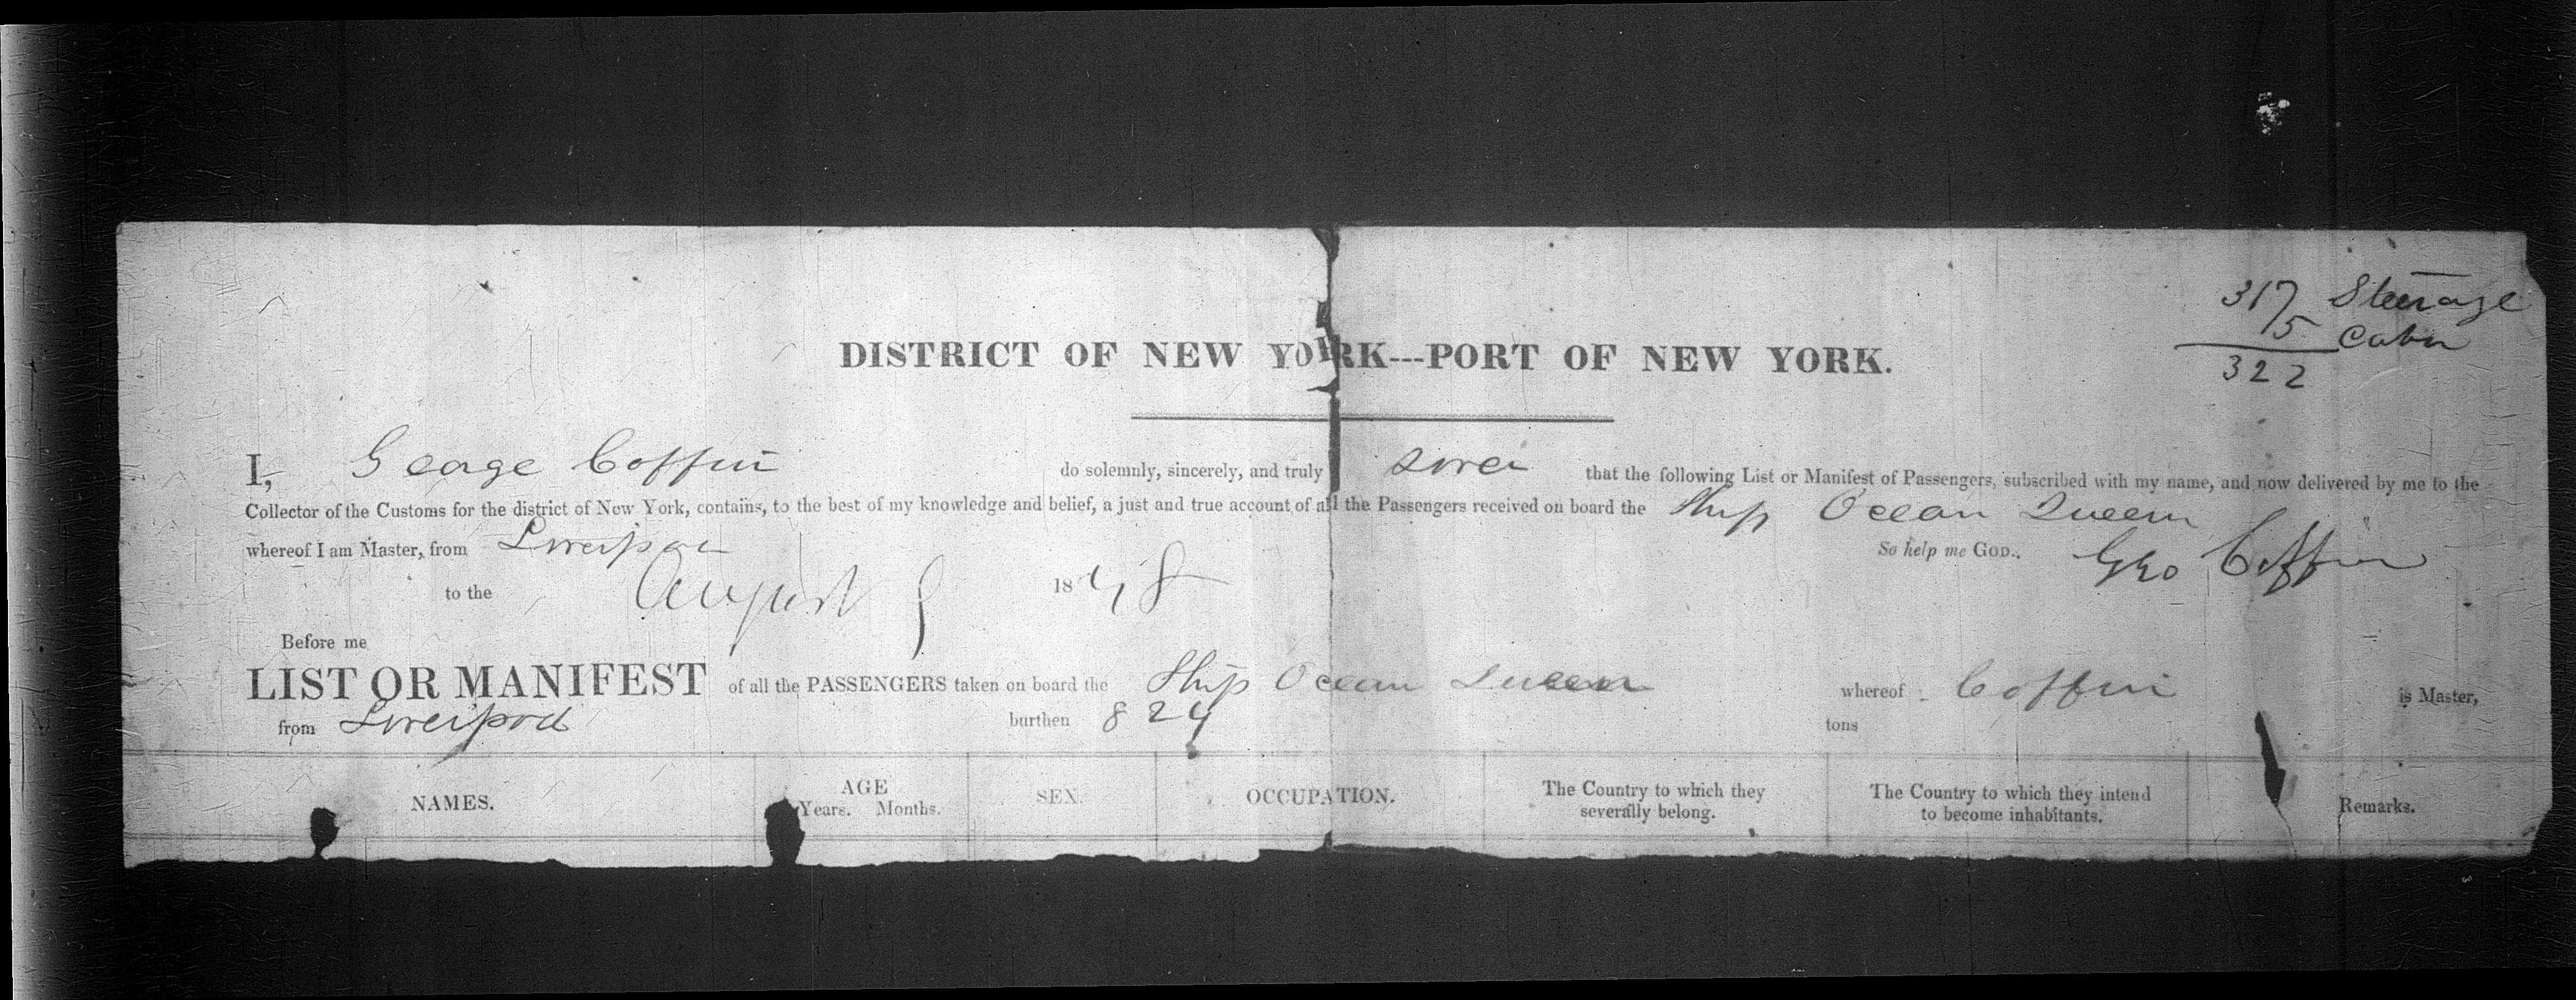 317 Steerage
5 Cabin
322
DISTRICT OF NEW YORK---PORT OF NEW YORK.
I, George Coffin do solemnly, sincerely, and truly swear that the following List or Manifest of Passengers, subscribed with my name, and now delivered by me to the
Collector of the Customs for the district of New York, contains, to the best of my knowledge and belief, a just and true account of all the Passengers received on board the Ship Ocean Queen
whereof I am Master, from Liverpool So help me GOD. Geo Coffin
to the August 9 1848
Before me
LIST OR MANIFEST of all the PASSENGERS taken on board the Ship Ocean Queen whereof Coffin is Master,
from Liverpool burthen 824 tons
NAMES. AGE SEX. OCCUPATION. The Country to which they The Country to which they intend Remarks.
Years. Months. severally belong. to become inhabitants.